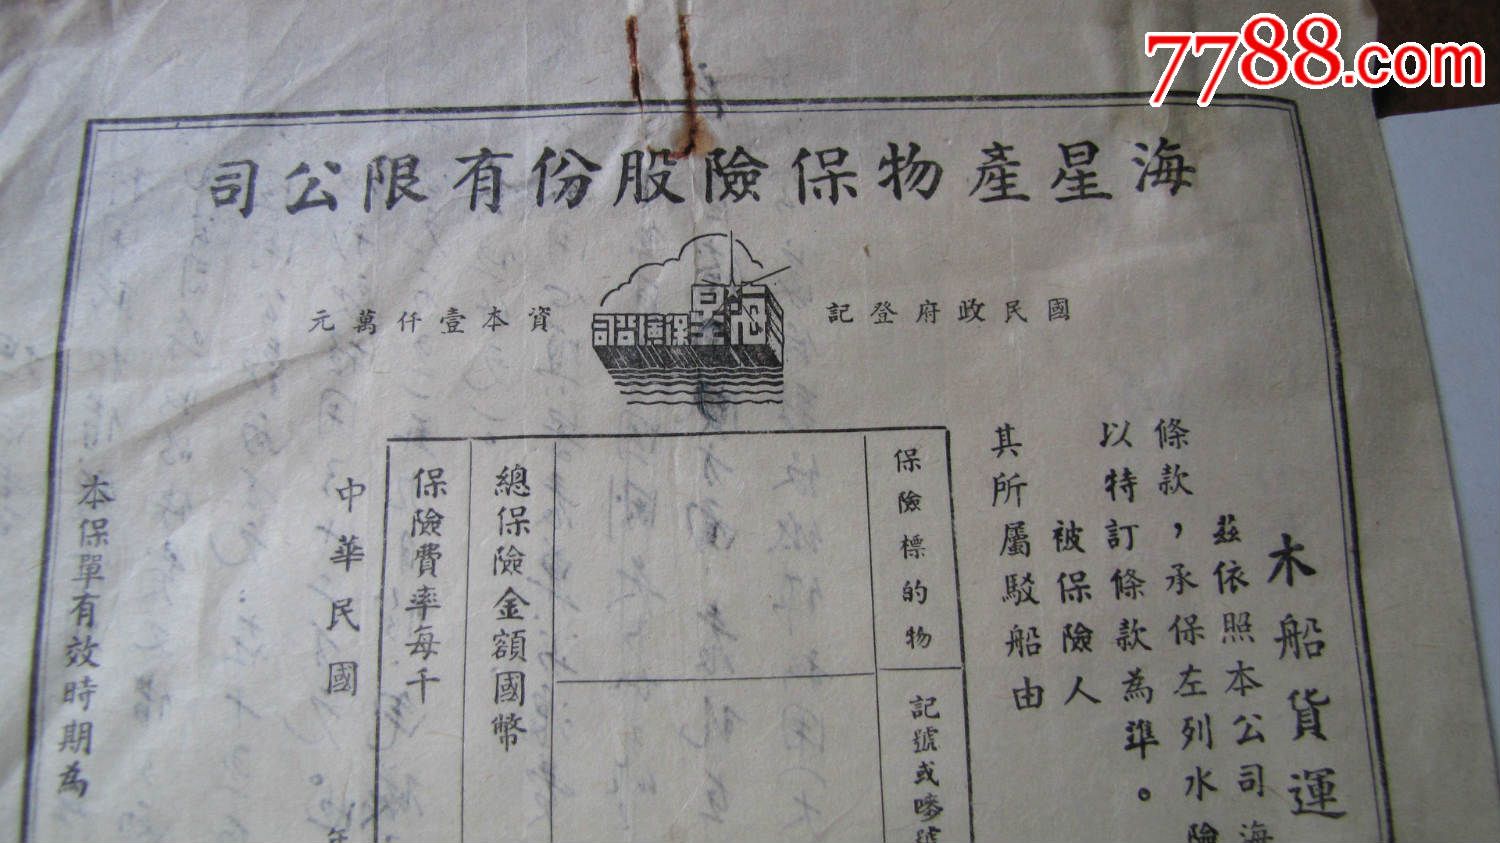 7788.com
海星產物保險股份有限公司
國民政府登記
海星
保險公司
資本壹仟萬元
木船貨運
茲依照本公司海
條款，承保左列水險
以特訂條款為準。
被保險人
其所屬駁船由
保險標的物
記號或嘜號
總保險金額國幣
保險費率每千
中華民國
年
本保單有效時期為